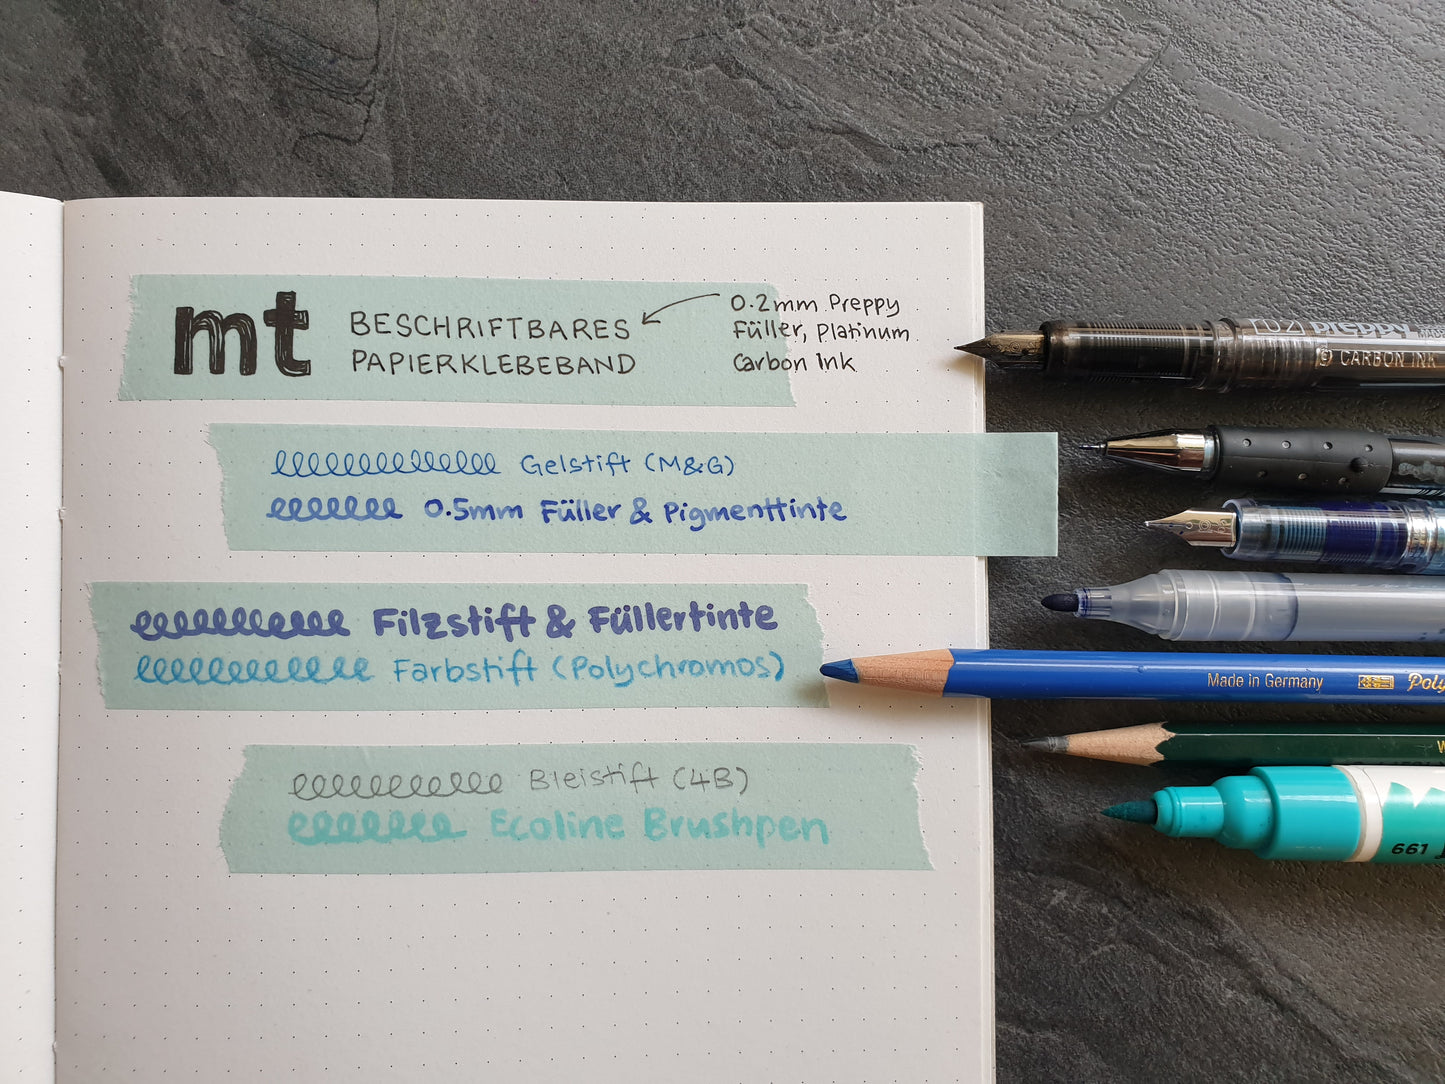 mt
BESCHRIFTBARES
PAPIERKLEBEBAND
0.2mm Preppy
Füller, Platinum
Carbon Ink
Gelstift (M&G)
0.5mm Füller & Pigmenttinte
Filzstift & Füllertinte
Farbstift (Polychromos)
Bleistift (4B)
Ecoline Brushpen
02 preppy
CARBON INK
Made in Germany
Poly
661